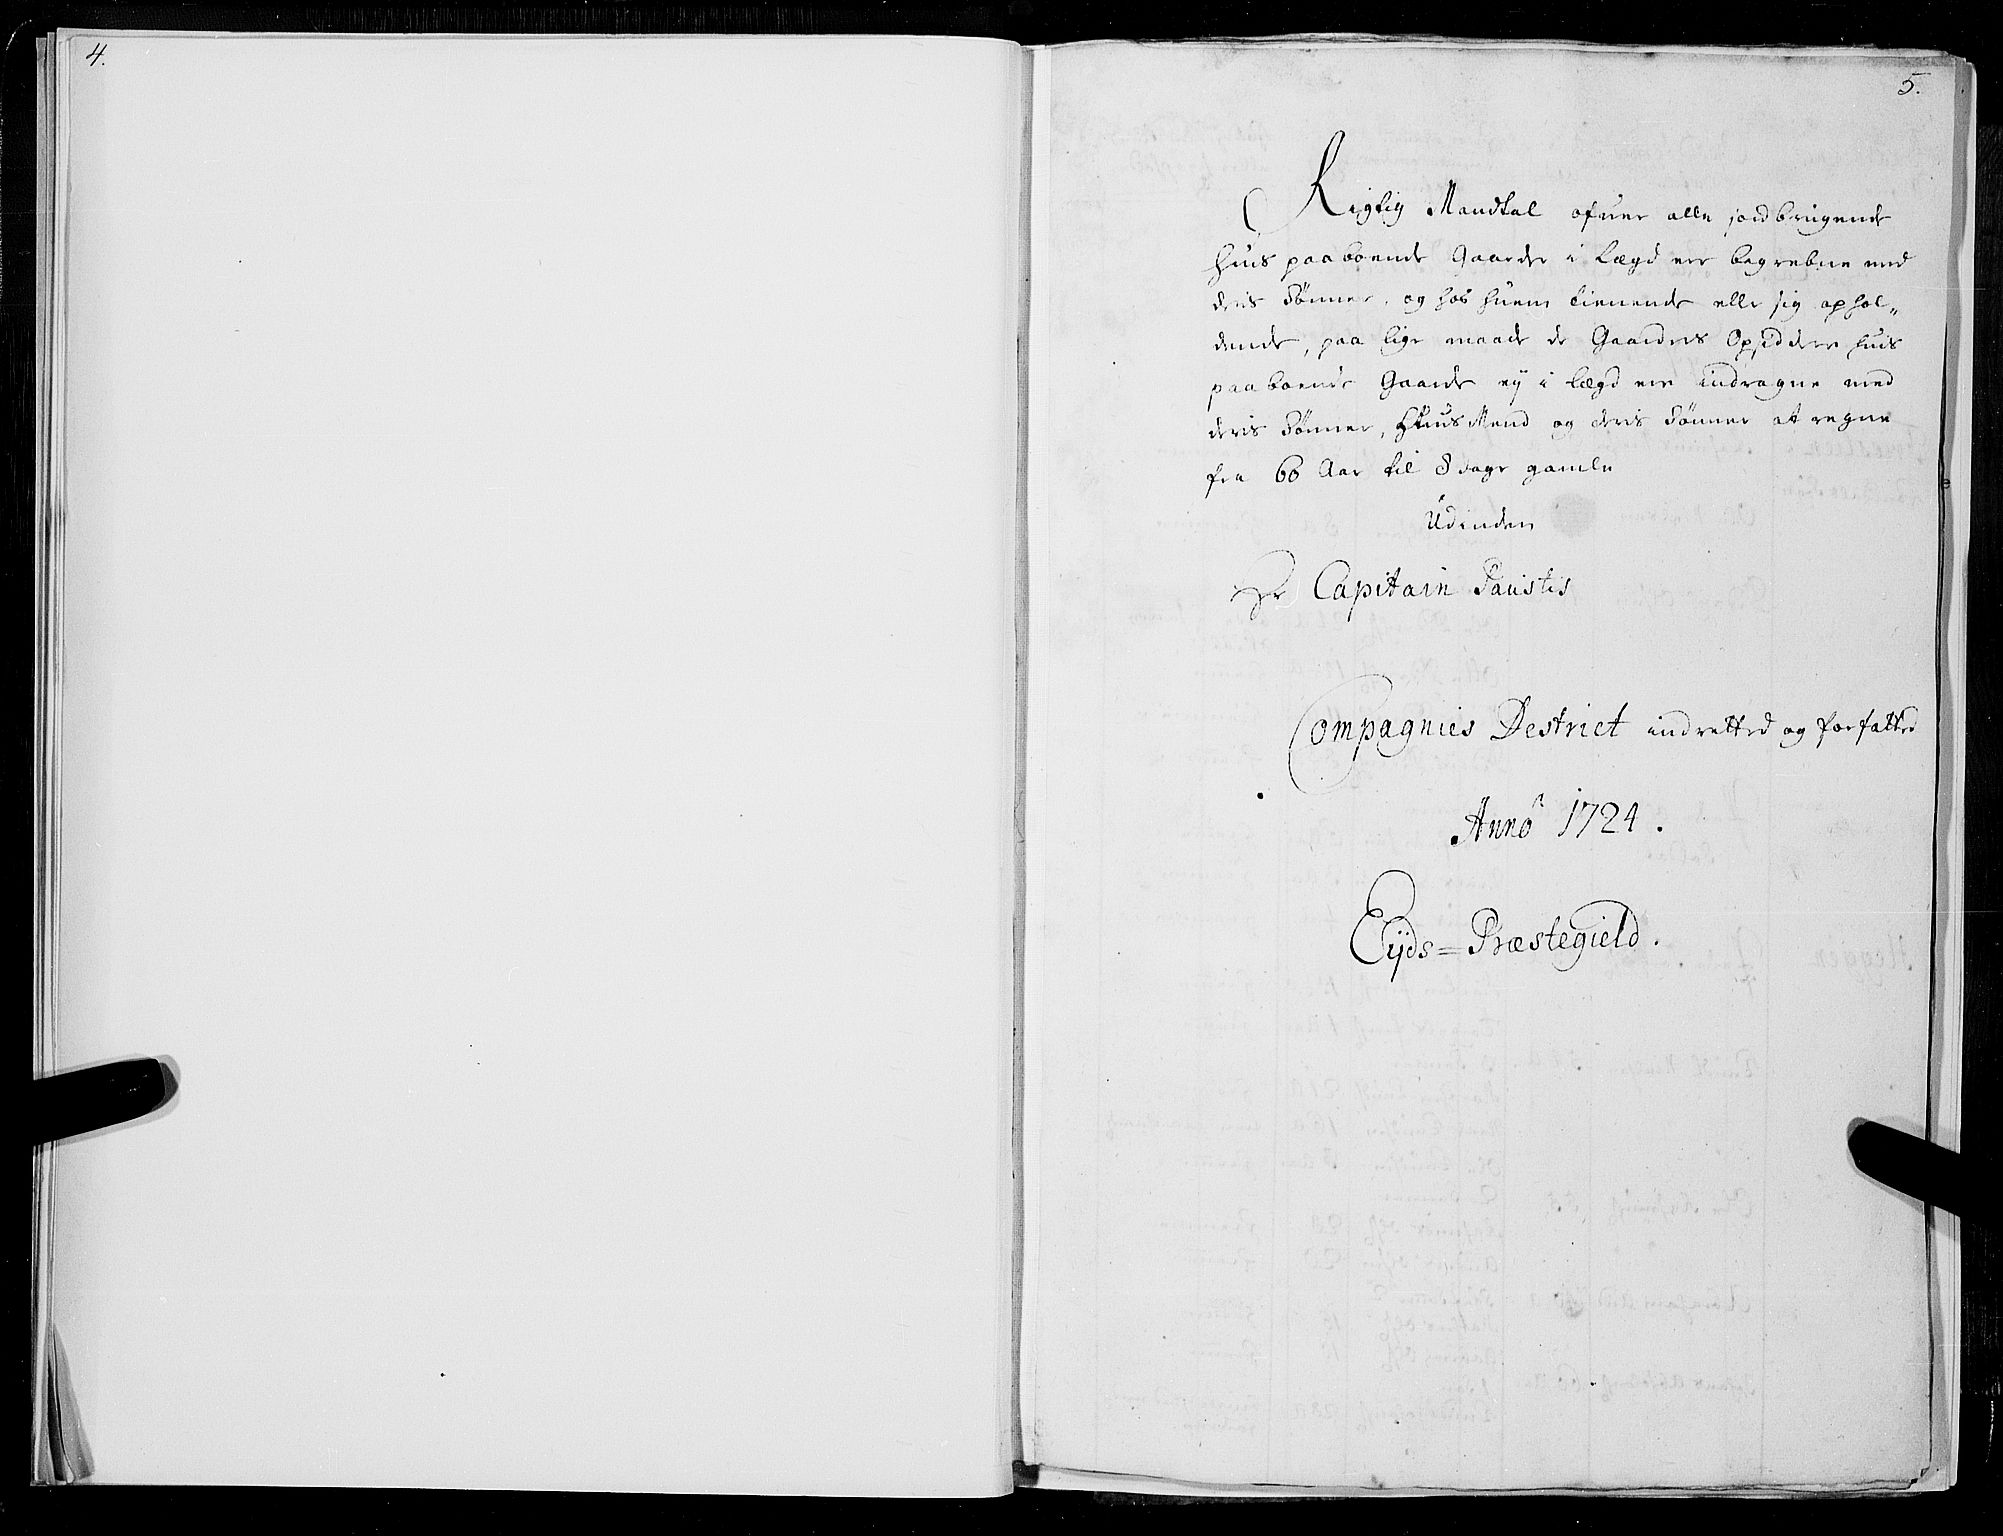 4.
5.
Rigtig Mandtal ofuer alle jordbrugende
huis paaboende Gaarder i Lægd ere begrebne med
deris Sønner, og hos huem tienende eller sig ophol„
dende, paa lige maade de Gaarders Opsiddere huis
paaboende Gaarde ey i Lægd ere indragne med
deris Sønner, HuusMend og deris Sønner at regne
fra 60 Aar til 8 dage gamle
Udinden
Hr Capitain Faustis
Compagnies Destrict indretted og forfatted
Anno 1724.
Eyds=Præstegield.